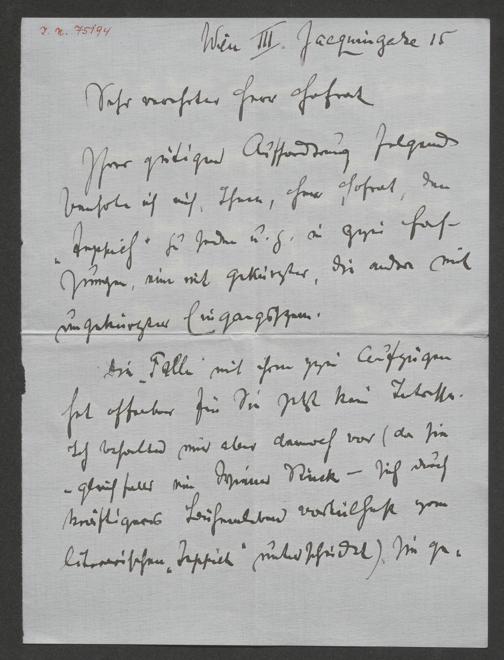 J. N. 75194
Wien III. Jacquingasse 15
Sehr verehrter Herr Hofrat
Ihrer gütigen Aufforderung folgend
beehre ich mich, Ihnen, Herr Hofrat, den
„Teppich“ zu senden u. z. in zwei Fas-
sungen, eine mit gekürzter, die andere mit
ungekürzter Eingangsszene.
Die „Falle“ mit ihren zwei Aufzügen
hat offenbar für Sie jetzt kein Interesse.
Ich behalte mir aber dennoch vor (da sie
– gleichfalls ein Wiener Stück – sich durch
kräftigeres Bühnenleben vorteilhaft vom
literarischen „Teppich“ unterscheidet), sie ge-